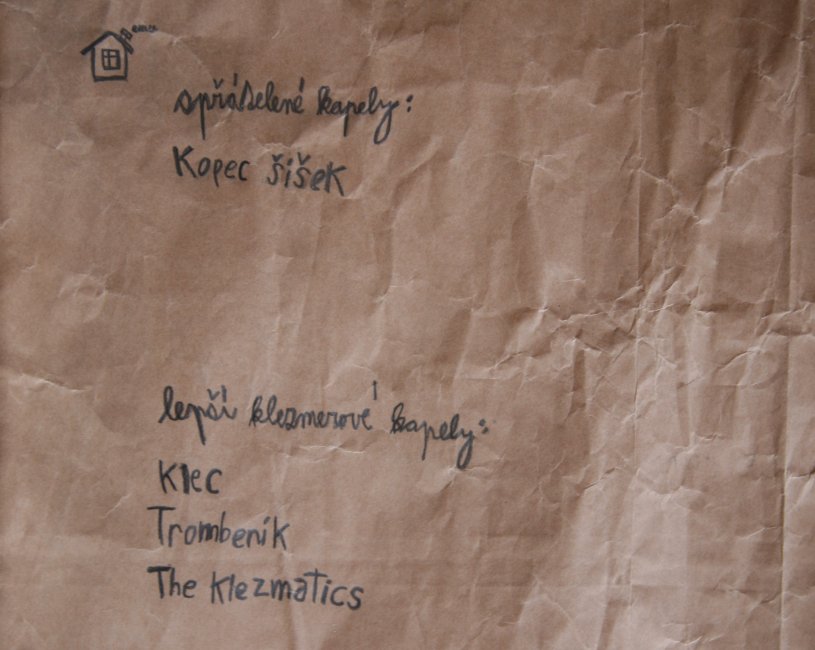 spřátelené kapely:
Kopec šišek
lepší klezmerové kapely:
Klec
Trombenik
The Klezmatics